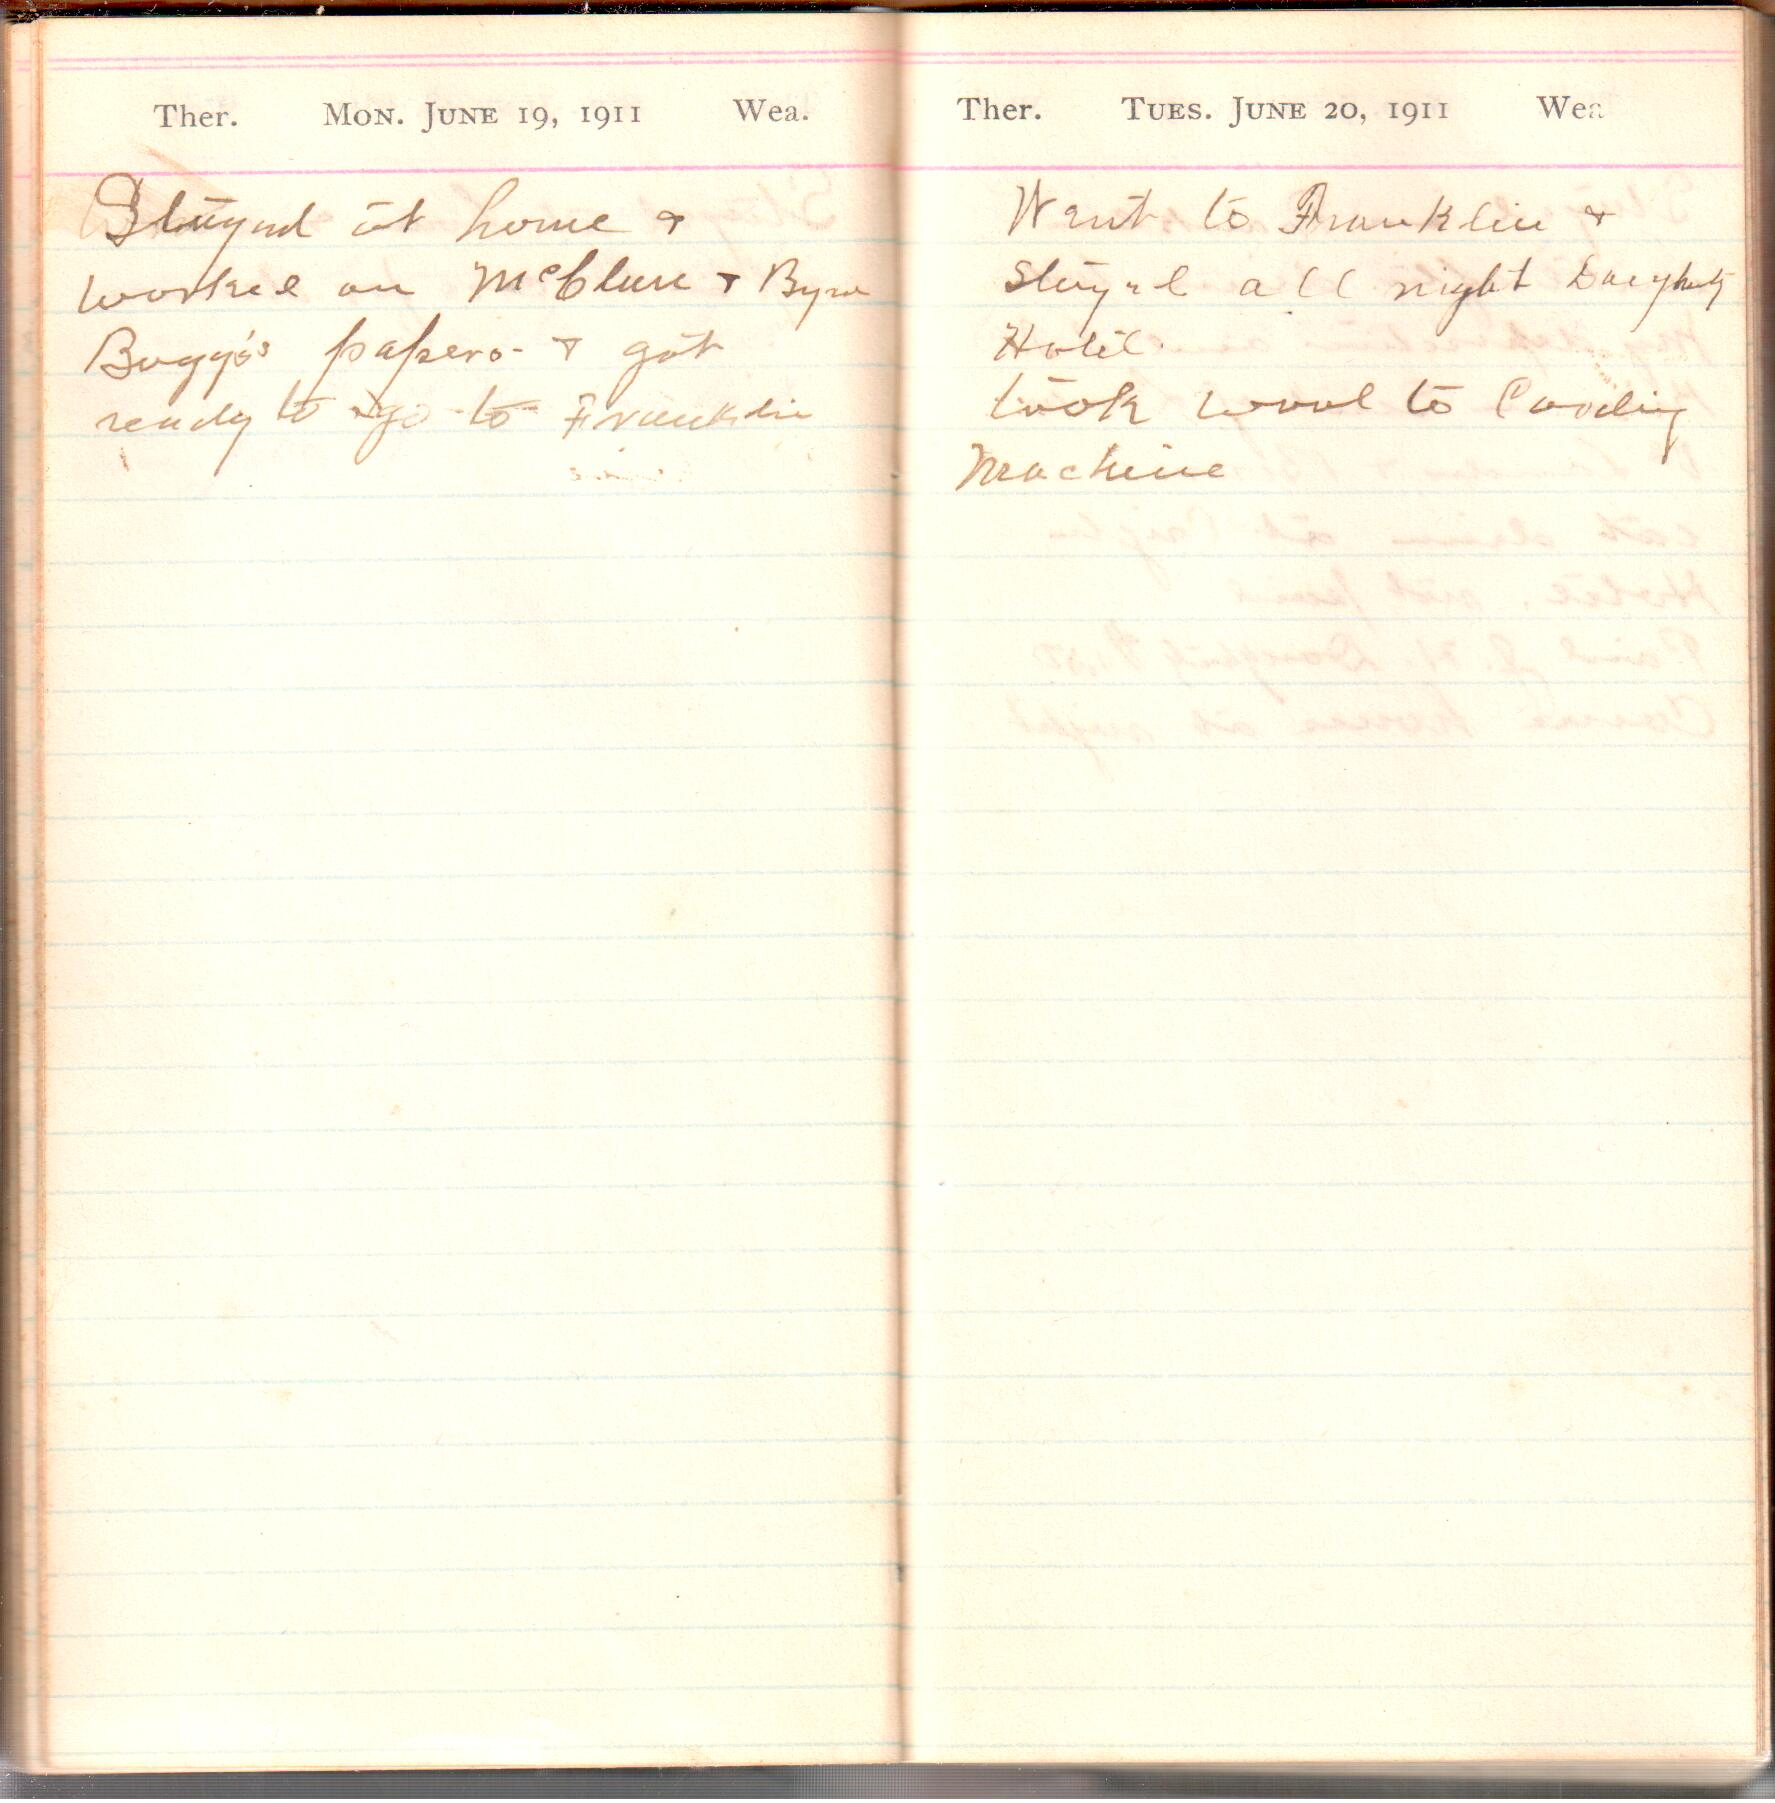 Ther. Mon. June 19, 1911 Wea.
Stayed at home &
worked on McClure & Byrn
Boggs's papers - & got
ready to go to Franklin
Ther. Tues. June 20, 1911 Wea
Went to Franklin &
Stayed all night
Hotel.
took wool to Carding
Machine